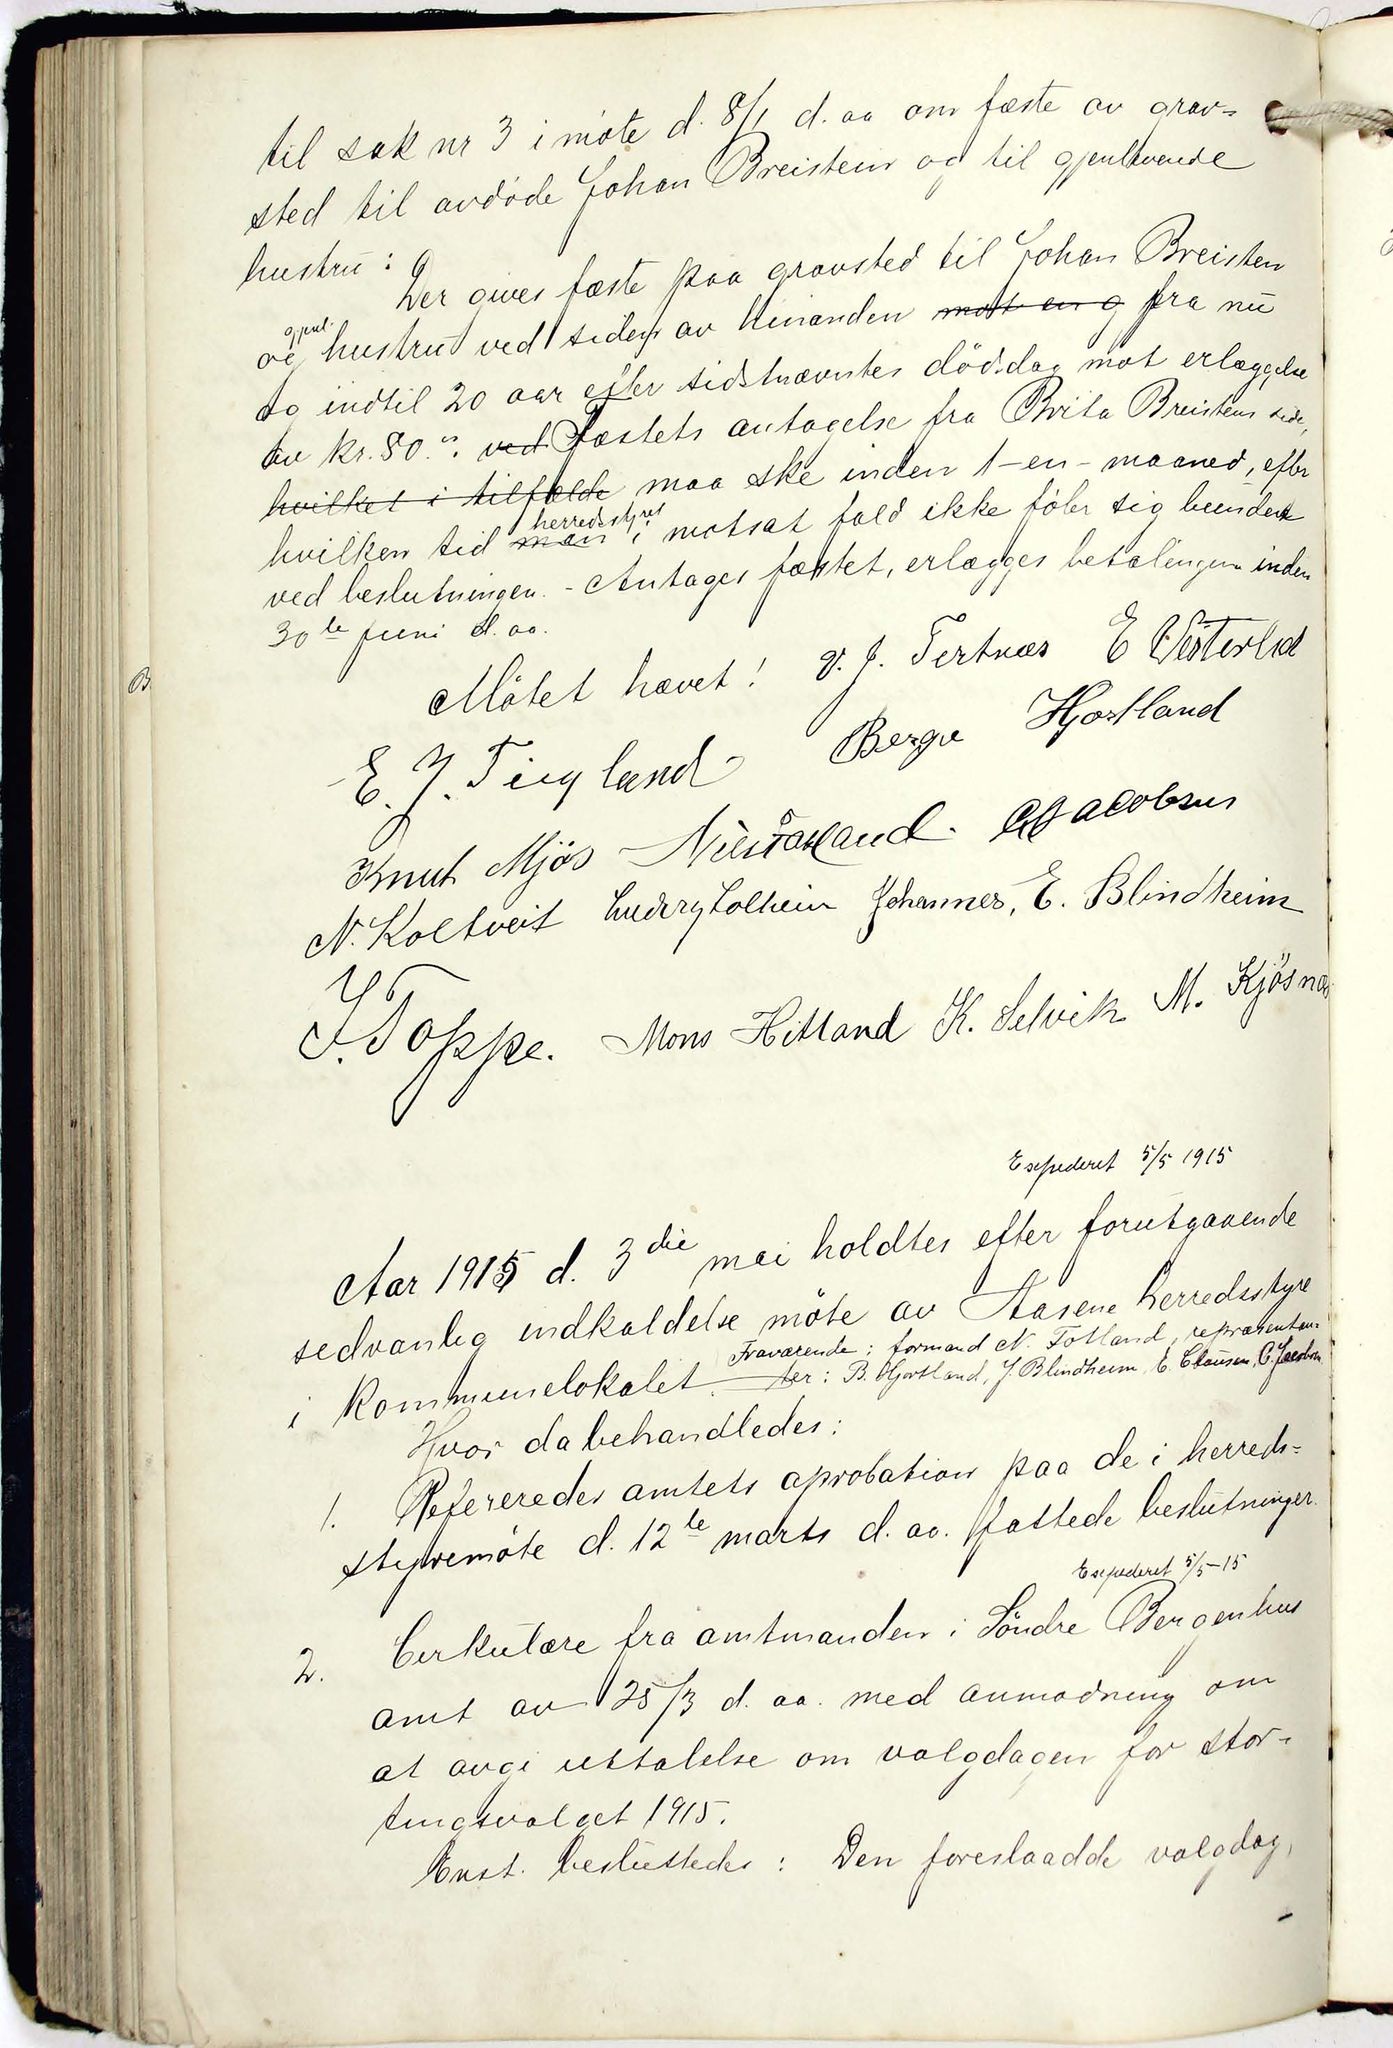 til sak nr 3 i møte d. 8/1 d. aa om fæste av grav=
sted til avdøde Johan Breistein og til gjenlevende
hustru:
Der gives fæste paa gravsted til Johan Breisten
og gjenl. hustru ved siden av hinanden mot en g fra nu
og indtil 20 aar efter sidstnævntes dødsdag mot erlæggelse
av kr. 80.- ved Fæstets antagelse fra Brita Breistens side,
hvilket i tilfælde maa ske inden 1-en-maaned, efter
hvilken tid man herredsstyret i motsat fald ikke føler sig bundet
ved beslutningen. - Antages fæstet, erlægges betalingen inden
30te juni d. aa.
B.
Møtet hævet! E Vesterlid
E. J. Teigland Hjortland
Knut Mjøs Jacobsen
N. Koltveit Johannes, E. Blindheim
J. Toppe. Mons Hitland K. Selvik M. Kjøsnæs
Expederet 5/5 1915
Aar 1915 d. 3die mai holdtes efter forutgaaende
sedvanlig indkaldelse møte av Aasene herredsstyre
Fraværende: formand N. Totland, repræsentan=
i kommunelokalet. ter: B. Hjortland, J. Blindheim, E. Clausen, C. Jacobsen
Hvor da behandledes:
1. Refereredes amtets aprobation paa de i herreds=
styremøte d. 12te marts d. aa. fattede beslutninger.
Expederet 5/5-15
2. Cirkulære fra amtmanden i Søndre Bergenhus
amt av 25/3 d. aa. med anmodning om
at avgi uttalelse om valgdagen for stor-
tingsvalget 1915.
Enst. besluttedes: Den foreslaadde valgdag,